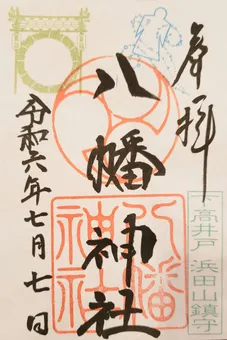 奉拝
八幡神社
令和六年七月七日
八幡
神社
下高井戸 浜田山鎮守